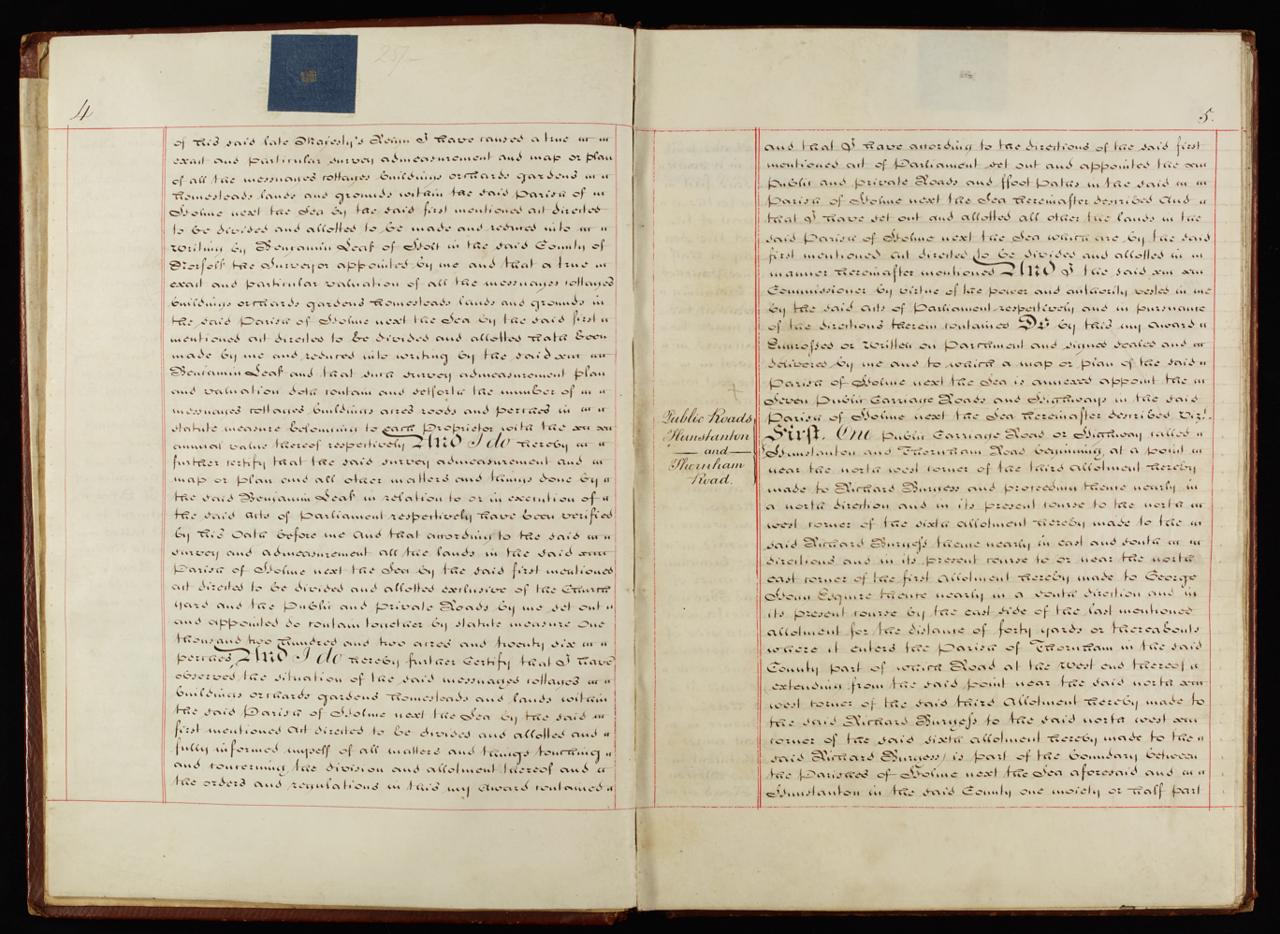 4
of his said late Majesty's Reign I have caused a true
exact and particular survey admeasurement and map or plan
of all the messuages cottages buildings orchards gardens
homesteads lands and grounds within the said Parish of
Holme next the Sea by the said first mentioned act directed
to be divided and allotted to be made and reduced into
writing by Benjamin Leak of Holt in the said County of
Norfolk the Surveyor appointed by me and that a true
exact and particular valuation of all the messuages cottages
buildings orchards gardens homesteads lands and grounds in
the said Parish of Holme next the Sea by the said first
mentioned act directed to be divided and allotted hath been
made by me and reduced into writing by the said
Benjamin Leak and that such survey admeasurement plan
and valuation doth contain and setforth the number of
messuages cottages buildings acres roods and perches in
statute measure belonging to each Proprietor with the
annual value thereof respectively And I do hereby
further certify that the said survey admeasurement and
map or plan and all other matters and things done by
the said Benjamin Leak in relation to or in execution of
the said acts of Parliament respectively have been verified
by his Oath before me And that according to the said
survey and admeasurement all the lands in the said
Parish of Holme next the Sea by the said first mentioned
act directed to be divided and allotted exclusive of the Church
yard and the Public and private Roads by me set out
and appointed do contain together by statute measure One
thousand two hundred and two acres and twenty six
perches And I do hereby further Certify that I have
observed the situation of the said messuages cottages
buildings orchards gardens homesteads and lands within
the said Parish of Holme next the Sea by the said
first mentioned Act directed to be divided and allotted and
fully informed myself of all matters and things touching
and concerning the division and allotment thereof and
the orders and regulations in this my award contained
5.
and that I have according to the directions of the said first
mentioned act of Parliament set out and appointed the
Public and private Roads and ffoot Paths in the said
Parish of Holme next the Sea hereinafter described And
that I have set out and allotted all other the lands in the
said Parish of Holme next the Sea which are by the said
first mentioned act directed to be divided and allotted in
manner hereinafter mentioned And I the said
Commissioner by virtue of the power and authority vested in me
by the said acts of Parliament respectively and in pursuance
of the directions therein contained Do by this my award
Engrossed or Written on Parchment and signed sealed and
delivered by me and to which a map or plan of the said
Parish of Holme next the Sea is annexed appoint the
Seven Public Carriage Roads and Highways in the said
Parish of Holme next the Sea hereinafter described Vizt.
Public Roads
Hunstanton
and
Thornham
Road.
First. One Public Carriage Road or Highway called
Hunstanton and Thornham Road beginning at a point
near the north west corner of the third allotment hereby
made to Richard Burgess and proceeding thence nearly in
a north direction and in its present course to the north
west corner of the sixth allotment hereby made to the
said Richard Burgess thence nearly in east and south
directions and in its present course to or near the north
east corner of the first Allotment hereby made to George
Hogg Esquire thence nearly in a south direction and in
its present course by the east side of the last mentioned
allotment for the distance of forty yards or thereabouts
where it enters the Parish of Thornham in the said
County part of which Road at the West end thereof
extending from the said point near the said north
west corner of the said third Allotment hereby made to
the said Richard Burgess to the said north west
corner of the said sixth allotment hereby made to the
said Richard Burgess is part of the boundary between
the Parishes of Holme next the Sea aforesaid and
Hunstanton in the said County one moiety or half part